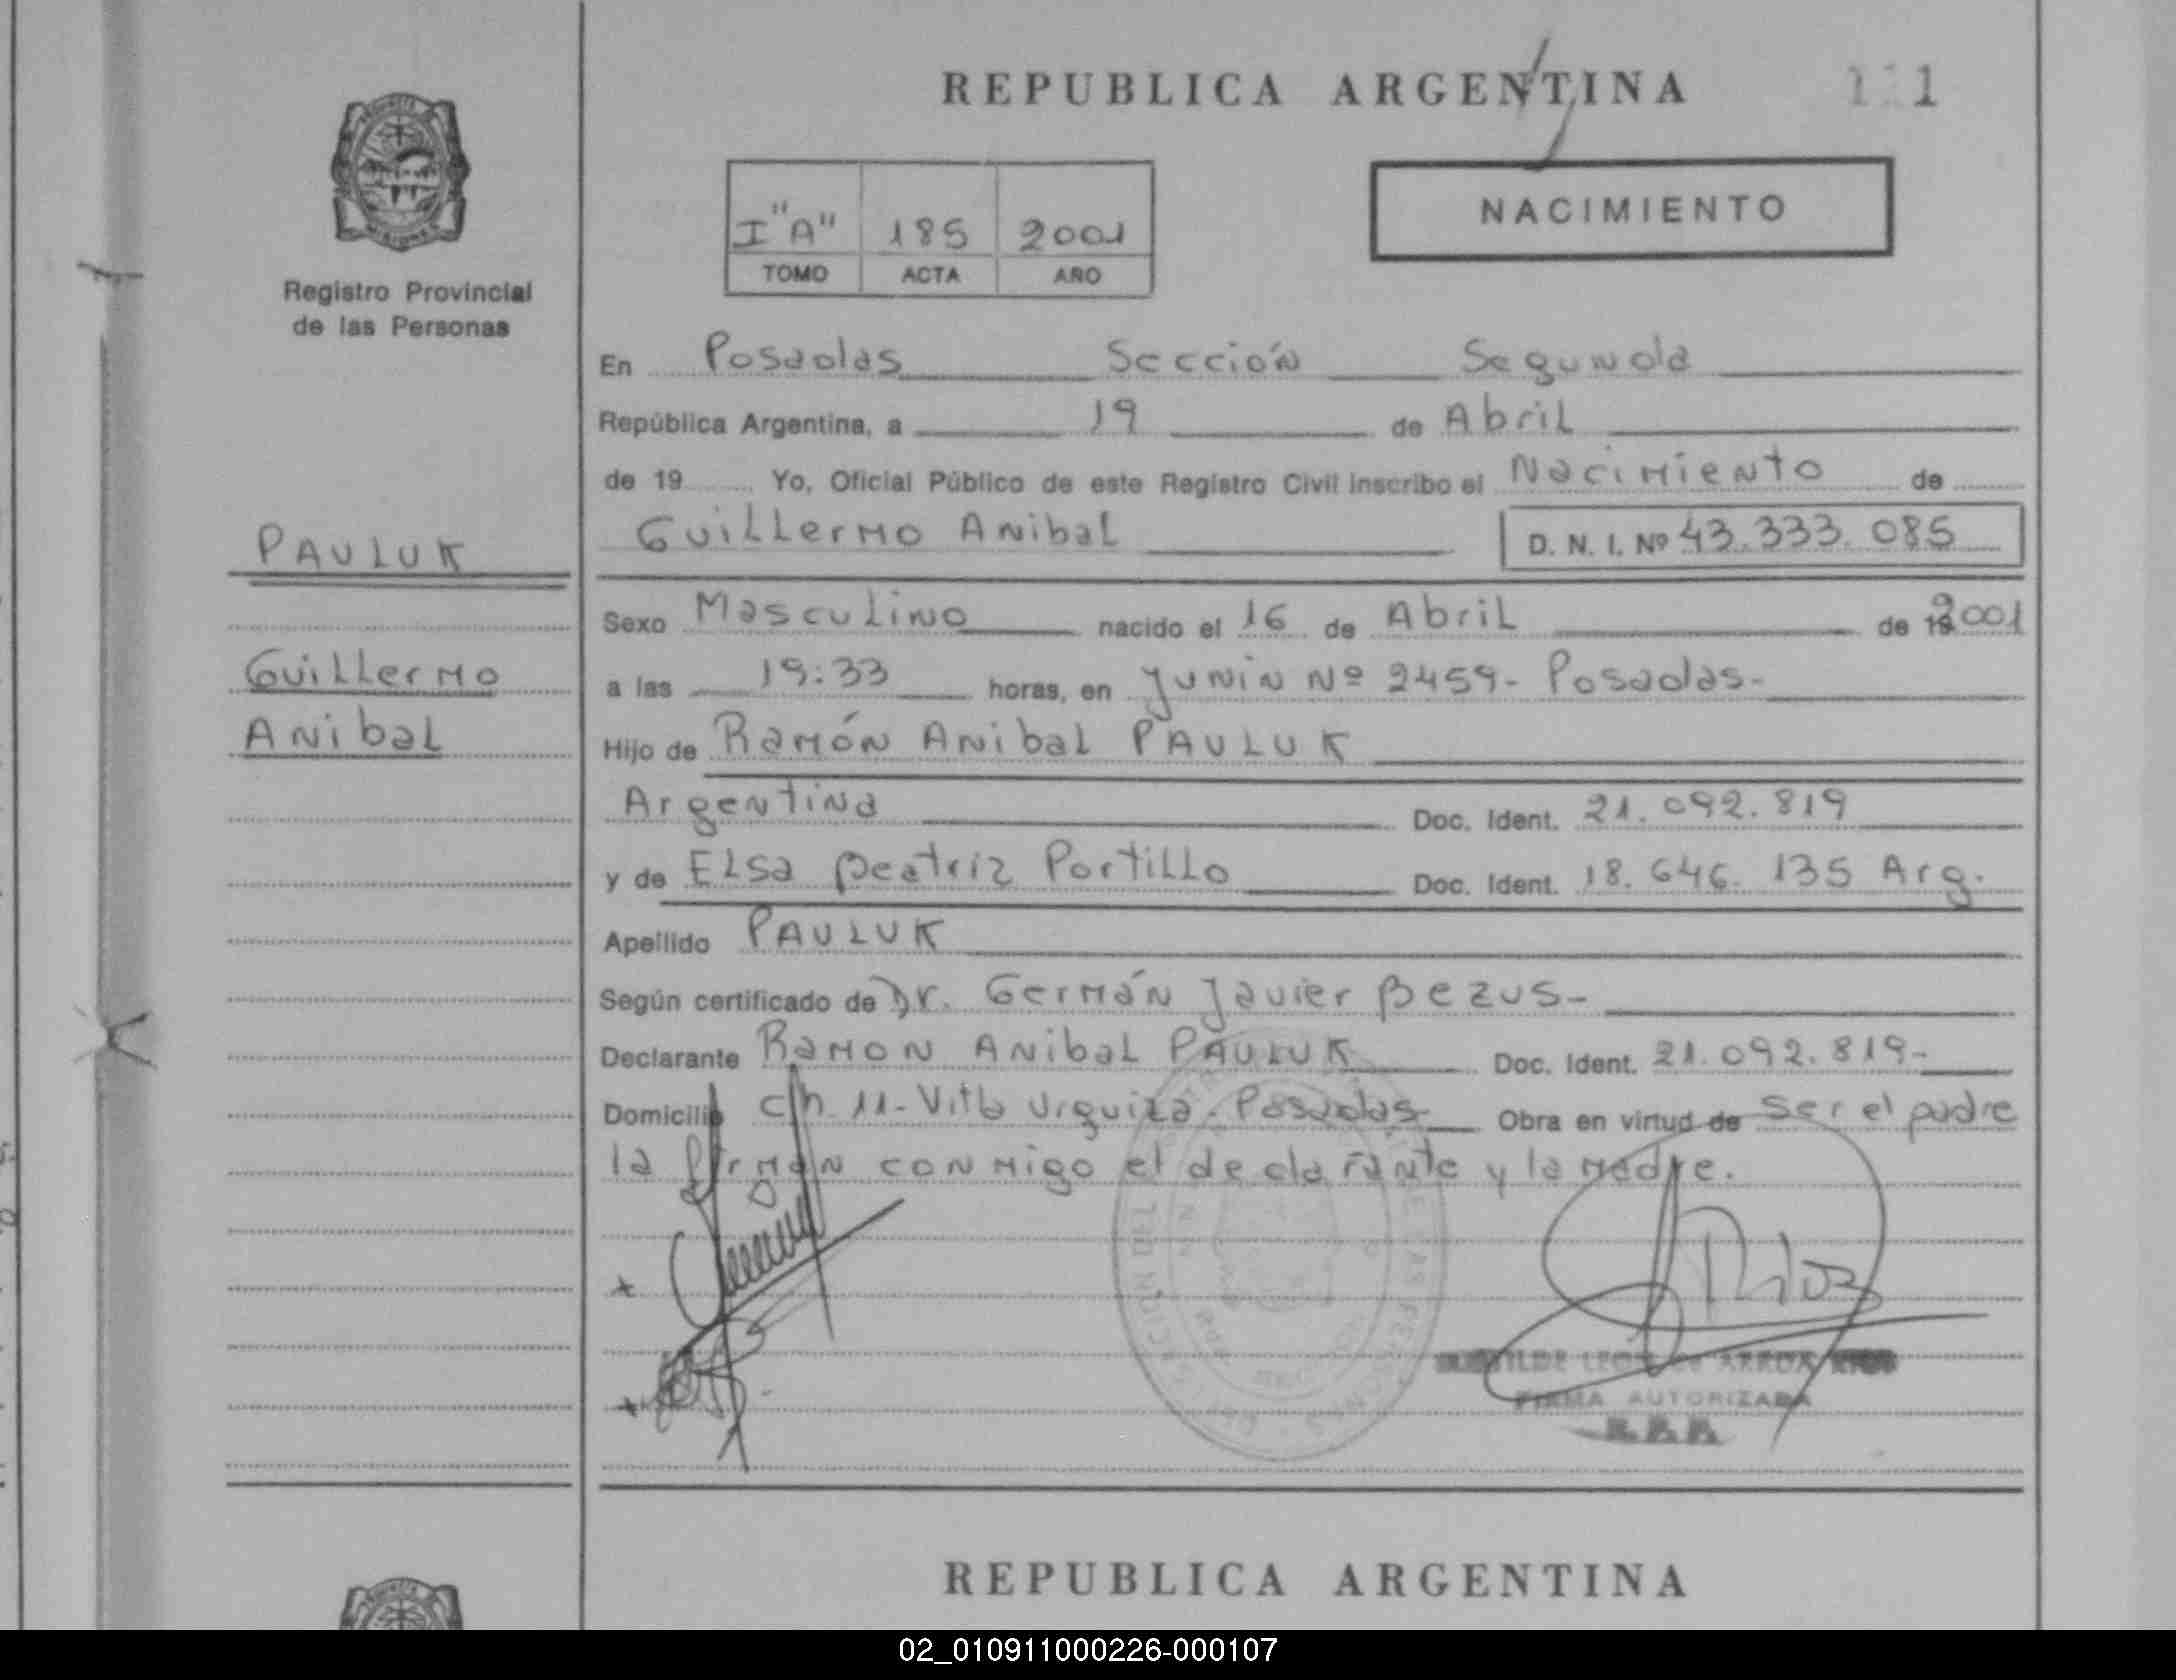 REPUBLICA ARGENTINA
NACIMIENTO
I "A" 185 2001
TOMO ACTA AÑO
Registro Provincial
de las Personas
PAULUK
Guillermo
Anibal
En Posadas Sección Segunda
República Argentina, a 19 de Abril
de 19 Yo, Oficial Público de este Registro Civil inscribo el Nacimiento de
Guillermo Anibal D. N. I. Nº 43.333.085
Sexo Masculino nacido el 16 de Abril de 2001
a las 19:33 horas, en Junin Nº 2459- Posadas-
Hijo de Ramón Anibal PAULUK
Argentina Doc. Ident. 21.092.819
y de Elsa Beatriz Portillo Doc. Ident. 18.646.135 Arg.
Apellido PAULUK
Según certificado de Dr. Germán Javier Bezus-
Declarante Ramon Anibal PAULUK Doc. Ident. 21.092.819-
Domicilio Ch. 11- Villa Urquiza- Posadas- Obra en virtud de Ser el padre
la firman conmigo el declarante y la madre.
FIRMA AUTORIZADA
REPUBLICA ARGENTINA
02_010911000226-000107